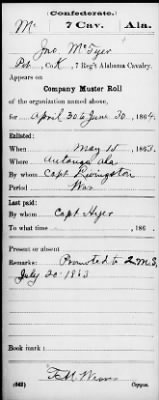 Confederate.
Mc 7 Cav. Ala.
Jno. McTyer
Pvt, Co. K, 7 Reg't Alabama Cavalry.
Appears on
Company Muster Roll
of the organization named above,
for April 30 to June 30, 1864.
Enlisted:
When May 15, 1863.
Where Autauga Ala
By whom Capt Livingston
Period War
Last paid:
By whom Capt Hyer
To what time , 186 .
Present or absent
Remarks: Promoted to 2 M.S.
July 20 1863
Book mark:
(642) Copyist.